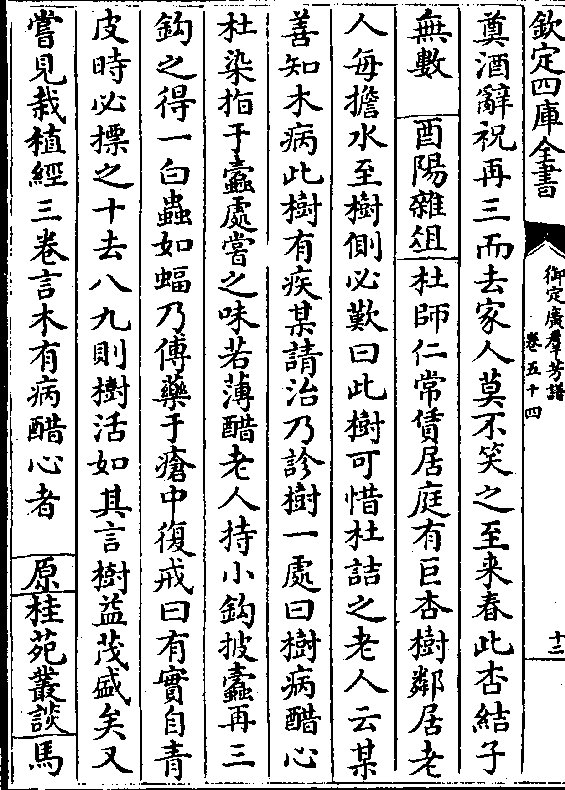 欽定四庫全書
御定廣羣芳譜
卷五十四
十三
奠酒辭祝再三而去家人莫不笑之至来春此杏結子
無數 酉陽雜俎 杜師仁常賃居庭有巨杏樹鄰居老
人每擔水至樹側必歎曰此樹可惜杜詰之老人云某
善知木病此樹有疾某請治乃診樹一處曰樹病醋心
杜染指于蠹處嘗之味若薄醋老人持小鈎披蠹再三
鈎之得一白蟲如蝠乃傅藥于瘡中復戒曰有實自青
皮時必摽之十去八九則樹活如其言樹益茂盛矣又
嘗見栽植經三卷言木有病醋心者 原桂苑叢談 馬